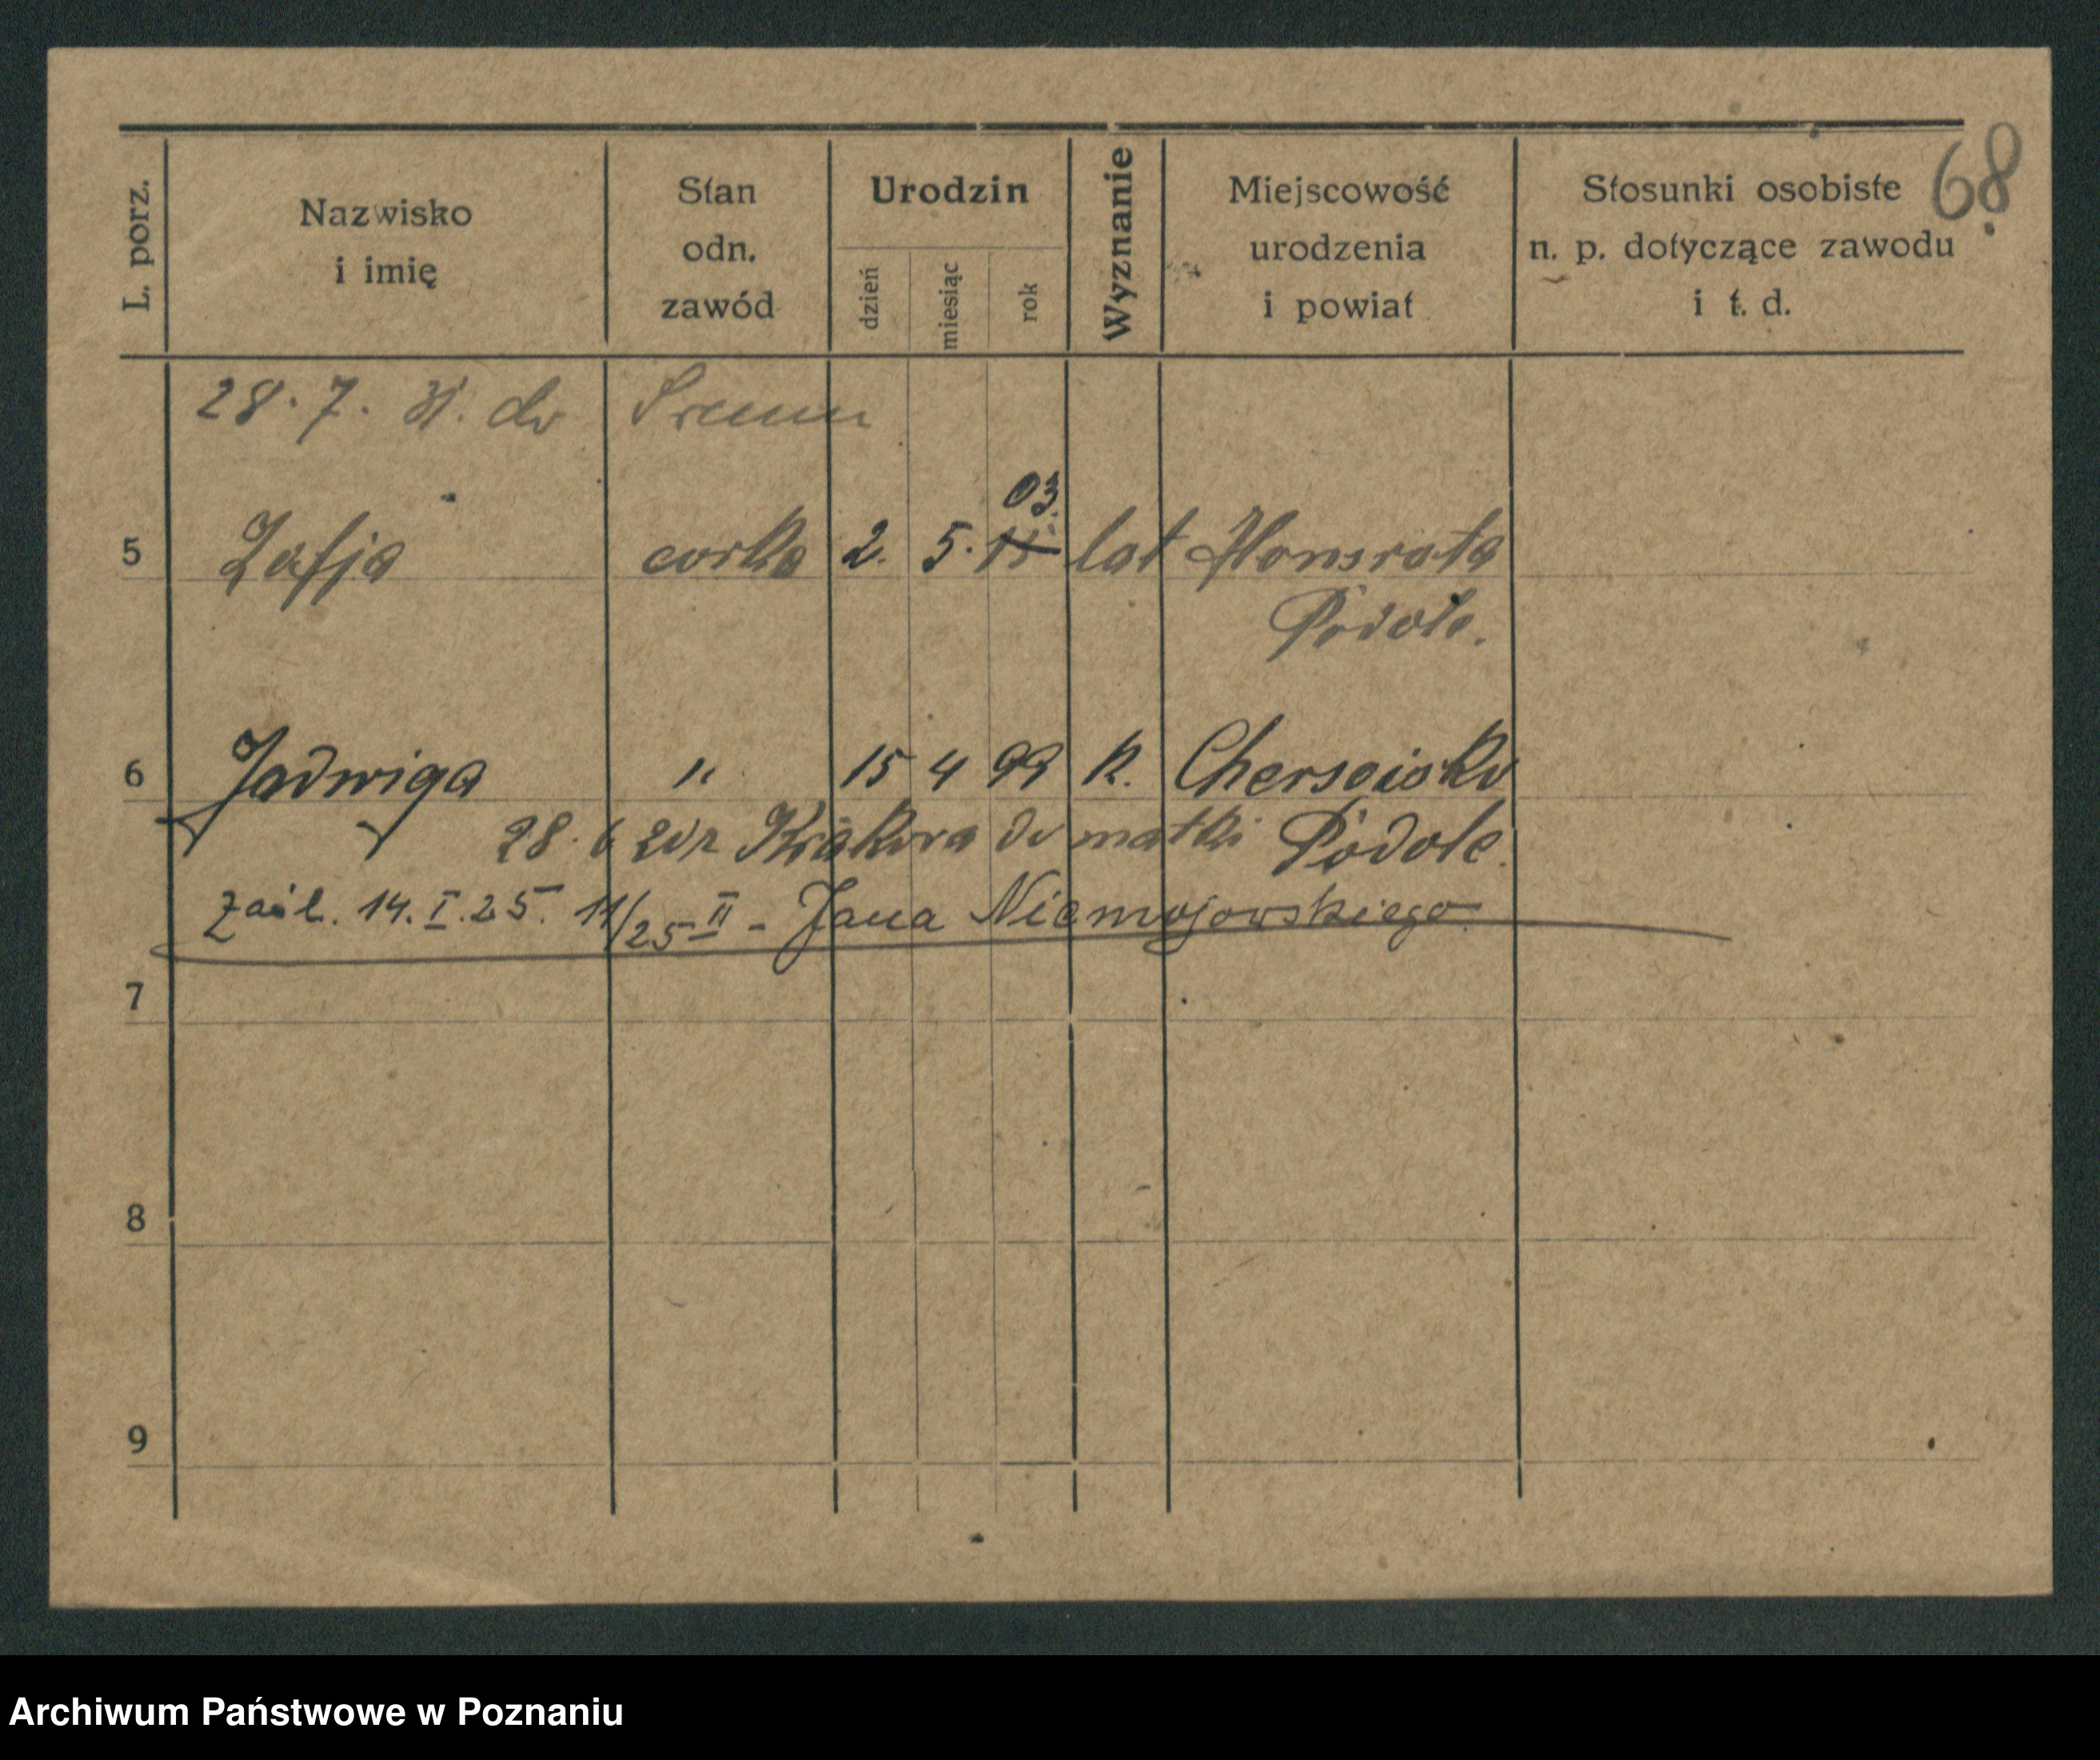 68
L. porz.
Nazwisko
i imię
Stan
odn.
zawód
Urodzin
dzień
miesiąc
rok
Wyznanie
Miejscowość
urodzenia
i powiat
Stosunki osobiste
n. p. dotyczące zawodu
i t. d.
28. 7. 31. do Śremu
03.
5 Zofja corka 2. 5. lat Honorata
Podole.
6 Jadwiga " 15 4 99 k.
28. 6 Krakowa do matki Podole.
Zaśl. 14. I. 25. 11/25 II - Jana Niemojowskiego
7
8
9
Archiwum Państwowe w Poznaniu